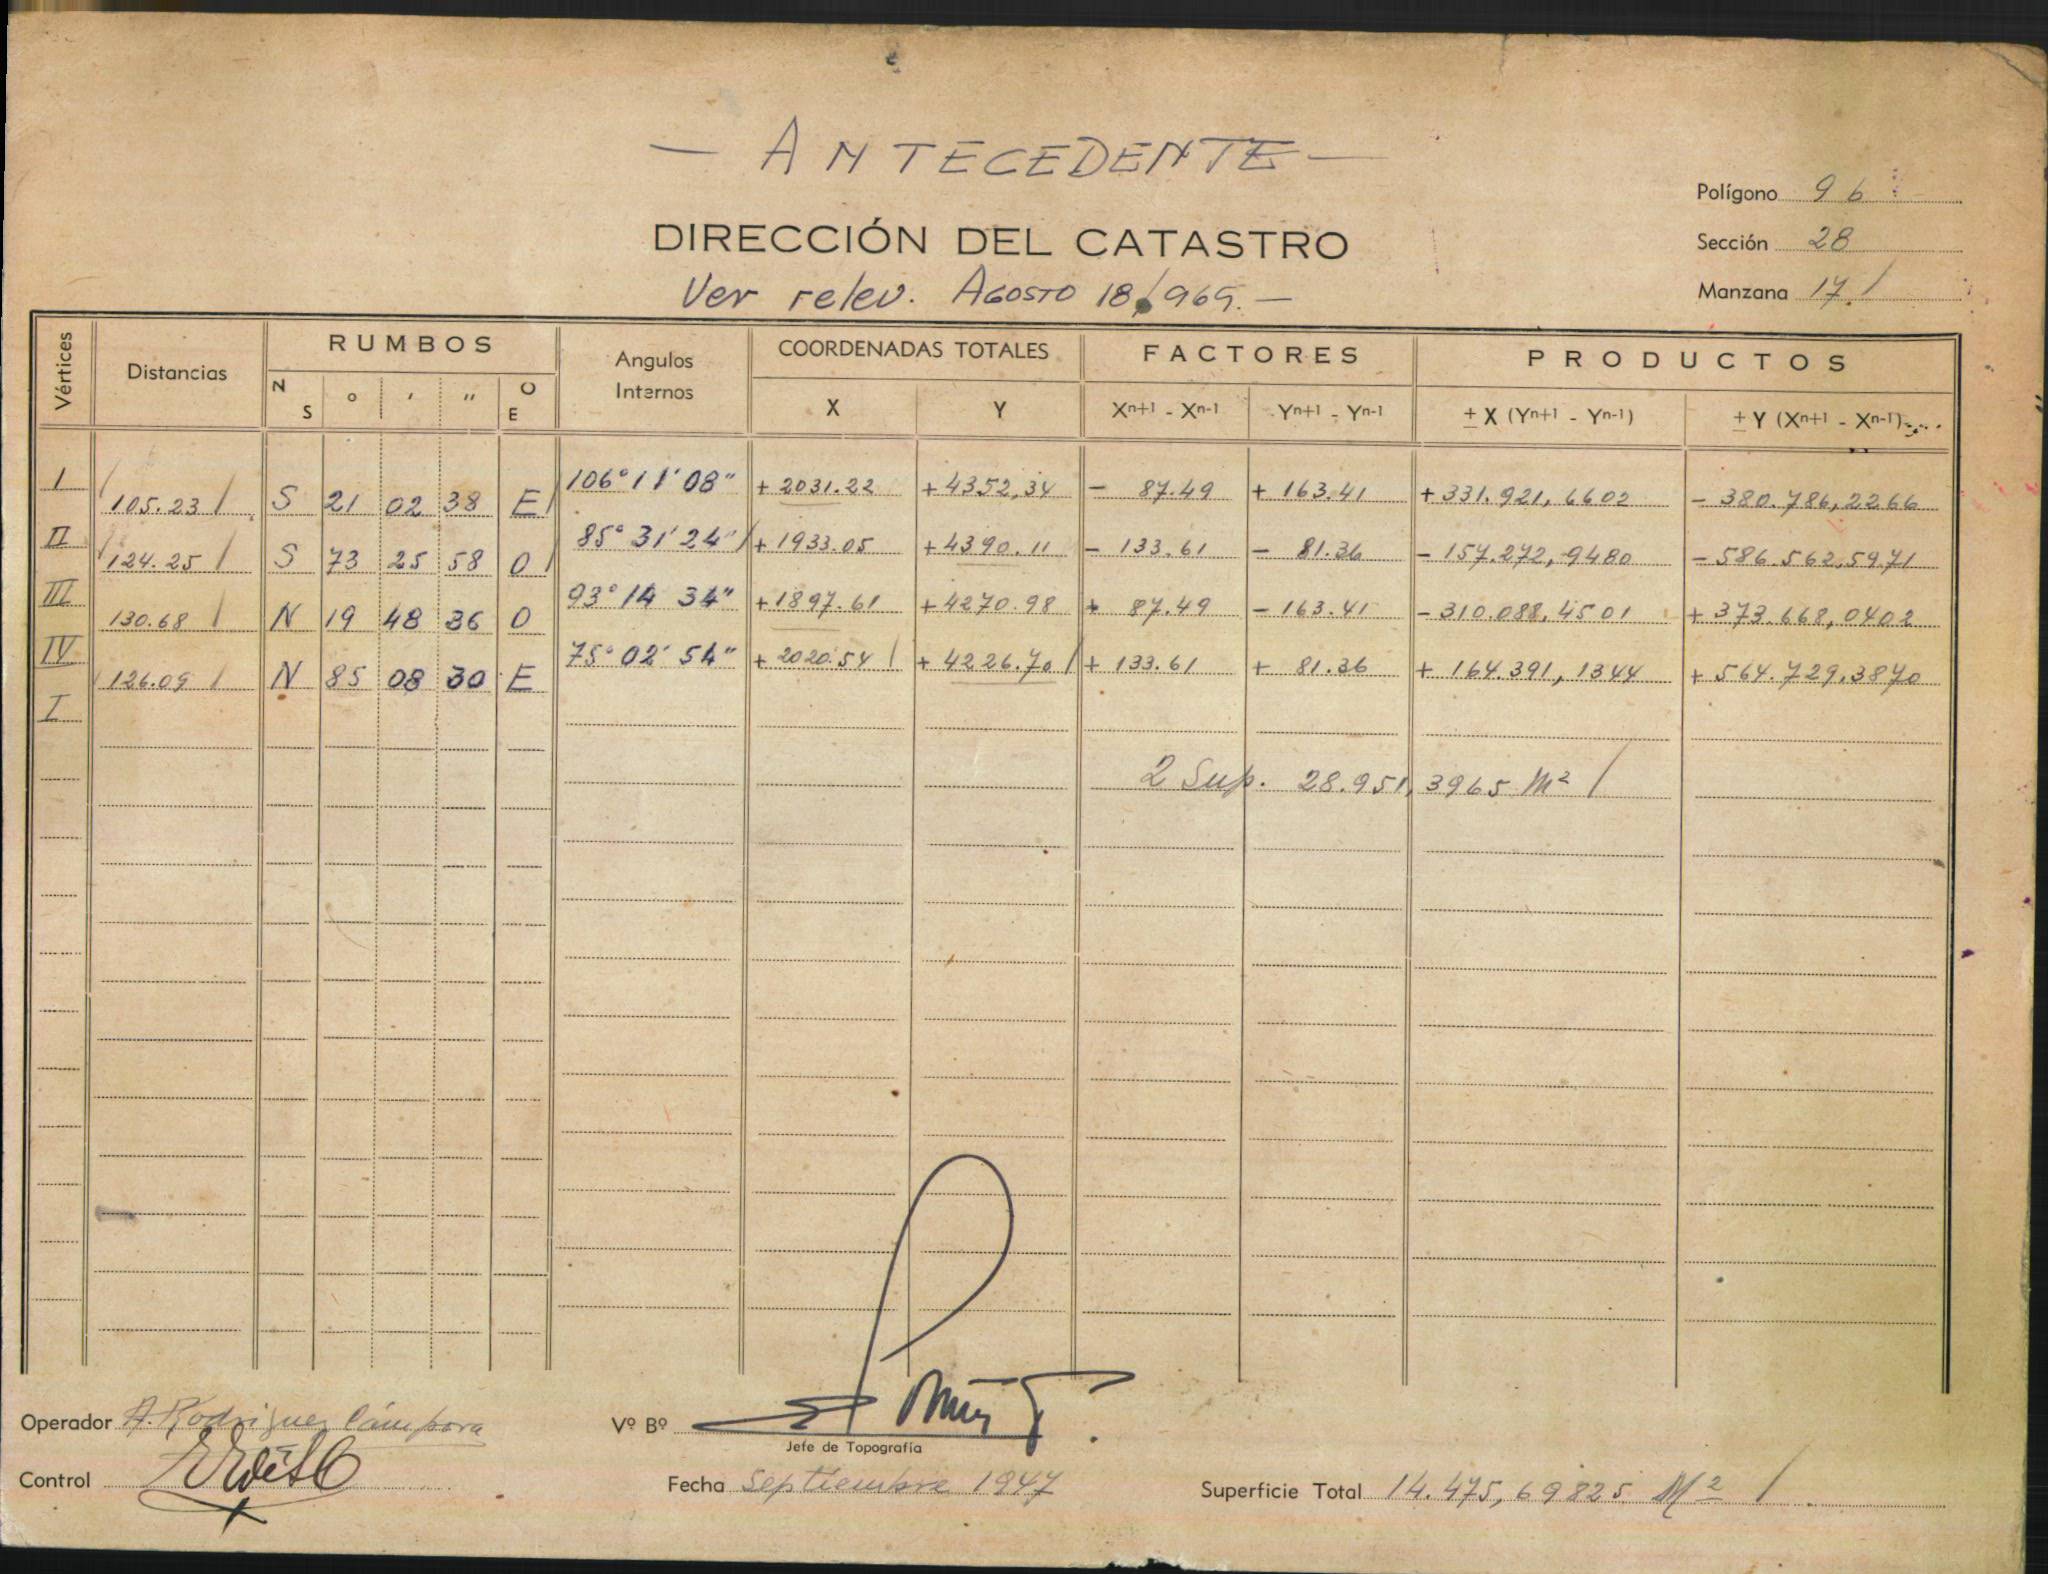 — ANTECEDENTE —
Polígono 96
DIRECCIÓN DEL CATASTRO
Sección 28
Ver relev. AGOSTO 18/969.—
Manzana 17/
Vértices Distancias RUMBOS Angulos Internos COORDENADAS TOTALES FACTORES PRODUCTOS
N S ° ' " O E X Y Xn+1 - Xn-1 Yn+1 - Yn-1 ± X (Yn+1 - Yn-1) ± Y (Xn+1 - Xn-1)
I 106° 11' 08" + 2031.22 + 4352,34 - 87.49 + 163.41 + 331.921,6602 - 380.786,2266
105.23 S 21 02 38 E
II 85° 31' 24" + 1933.05 + 4390.11 - 133.61 - 81.36 - 157.272,9480 - 586.562,5971
124.25 S 73 25 58 O
III 93° 14 34" + 1897.61 + 4270.98 + 87.49 - 163.41 - 310.088,4501 + 373.668,0402
130.68 N 19 48 36 O
IV 75° 02' 54" + 2020.54 + 4226.70 + 133.61 + 81.36 + 164.391,1344 + 564.729,3870
126.09 N 85 08 30 E
I
2 Sup. 28.951,3965 M² /
Operador A. Rodriguez Cámpora
Vº Bº
Jefe de Topografía
Control
Fecha Septiembre 1947
Superficie Total 14.475,69825 M² /